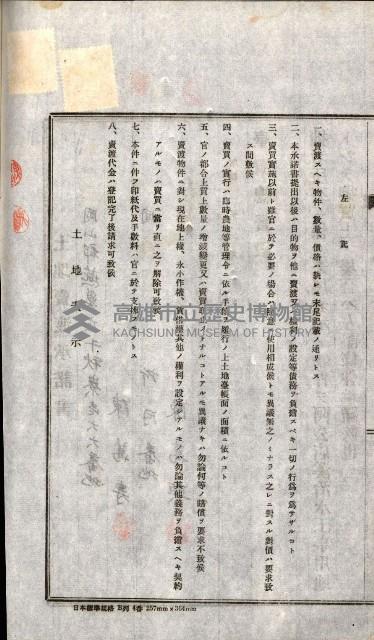 左記
一、賣渡スヘキ物件、數量、價格ハ總レモ末尾記載ノ通リトス
二、本承諾書提出以後ハ目的物ヲ他ニ賣渡又ハ權利ノ設定等債務ヲ負擔スベキ一切ノ行爲ヲ爲サザルコト
三、賣買實施以前ト雖官ニ於テ必要ノ場合ハ隨意ニ使用相成候トモ異議無之ノミナラス之レニ對スル對價ハ要求致
ス間敷候
四、賣買ノ實行ハ臨時農地等管理令ニ依ル手續ヲ履行ノ上土地臺帳面ノ面積ニ依ルコト
五、官ノ都合上買上數量ノ增減變更又ハ賣買
コトアルモ異議ナキハ勿論何等ノ賠償ヲ要求不致候
六、賣渡物件ニ對シ現在地上權、永小作權、賃借權其他ノ權利ヲ設定シアルモノハ勿論其他義務ヲ負擔スヘキ契約
アルモノハ賣買ニ當リ直ニ之ヲ解除可致候
七、本件ニ件フ印紙代及手數料ハ官ニ於テ支拂フコトス
八、賣渡代金ハ登記完了後請求可致候
土地ノ表示
高雄市立歷史博物館
KAOHSIUNG MUSEUM OF HISTORY
日本標準規格 B列4番 257mm×364mm